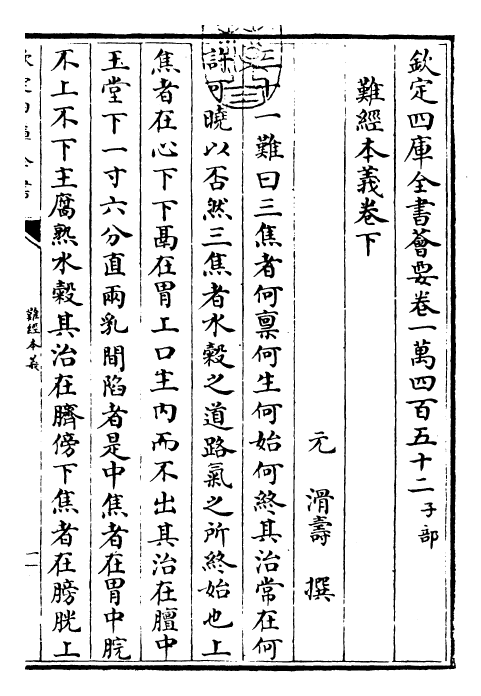 欽定四庫全書薈要卷一萬四百五十二子部
難經本義卷下
元 滑壽 撰
三十一難曰三焦者何禀何生何始何終其治常在何
許可曉以否然三焦者水穀之道路氣之所終始也上
焦者在心下下鬲在胃上口主内而不出其治在膻中
玉堂下一寸六分直兩乳間陷者是中焦者在胃中脘
不上不下主腐熟水穀其治在臍傍下焦者在膀胱上
難經本義
一